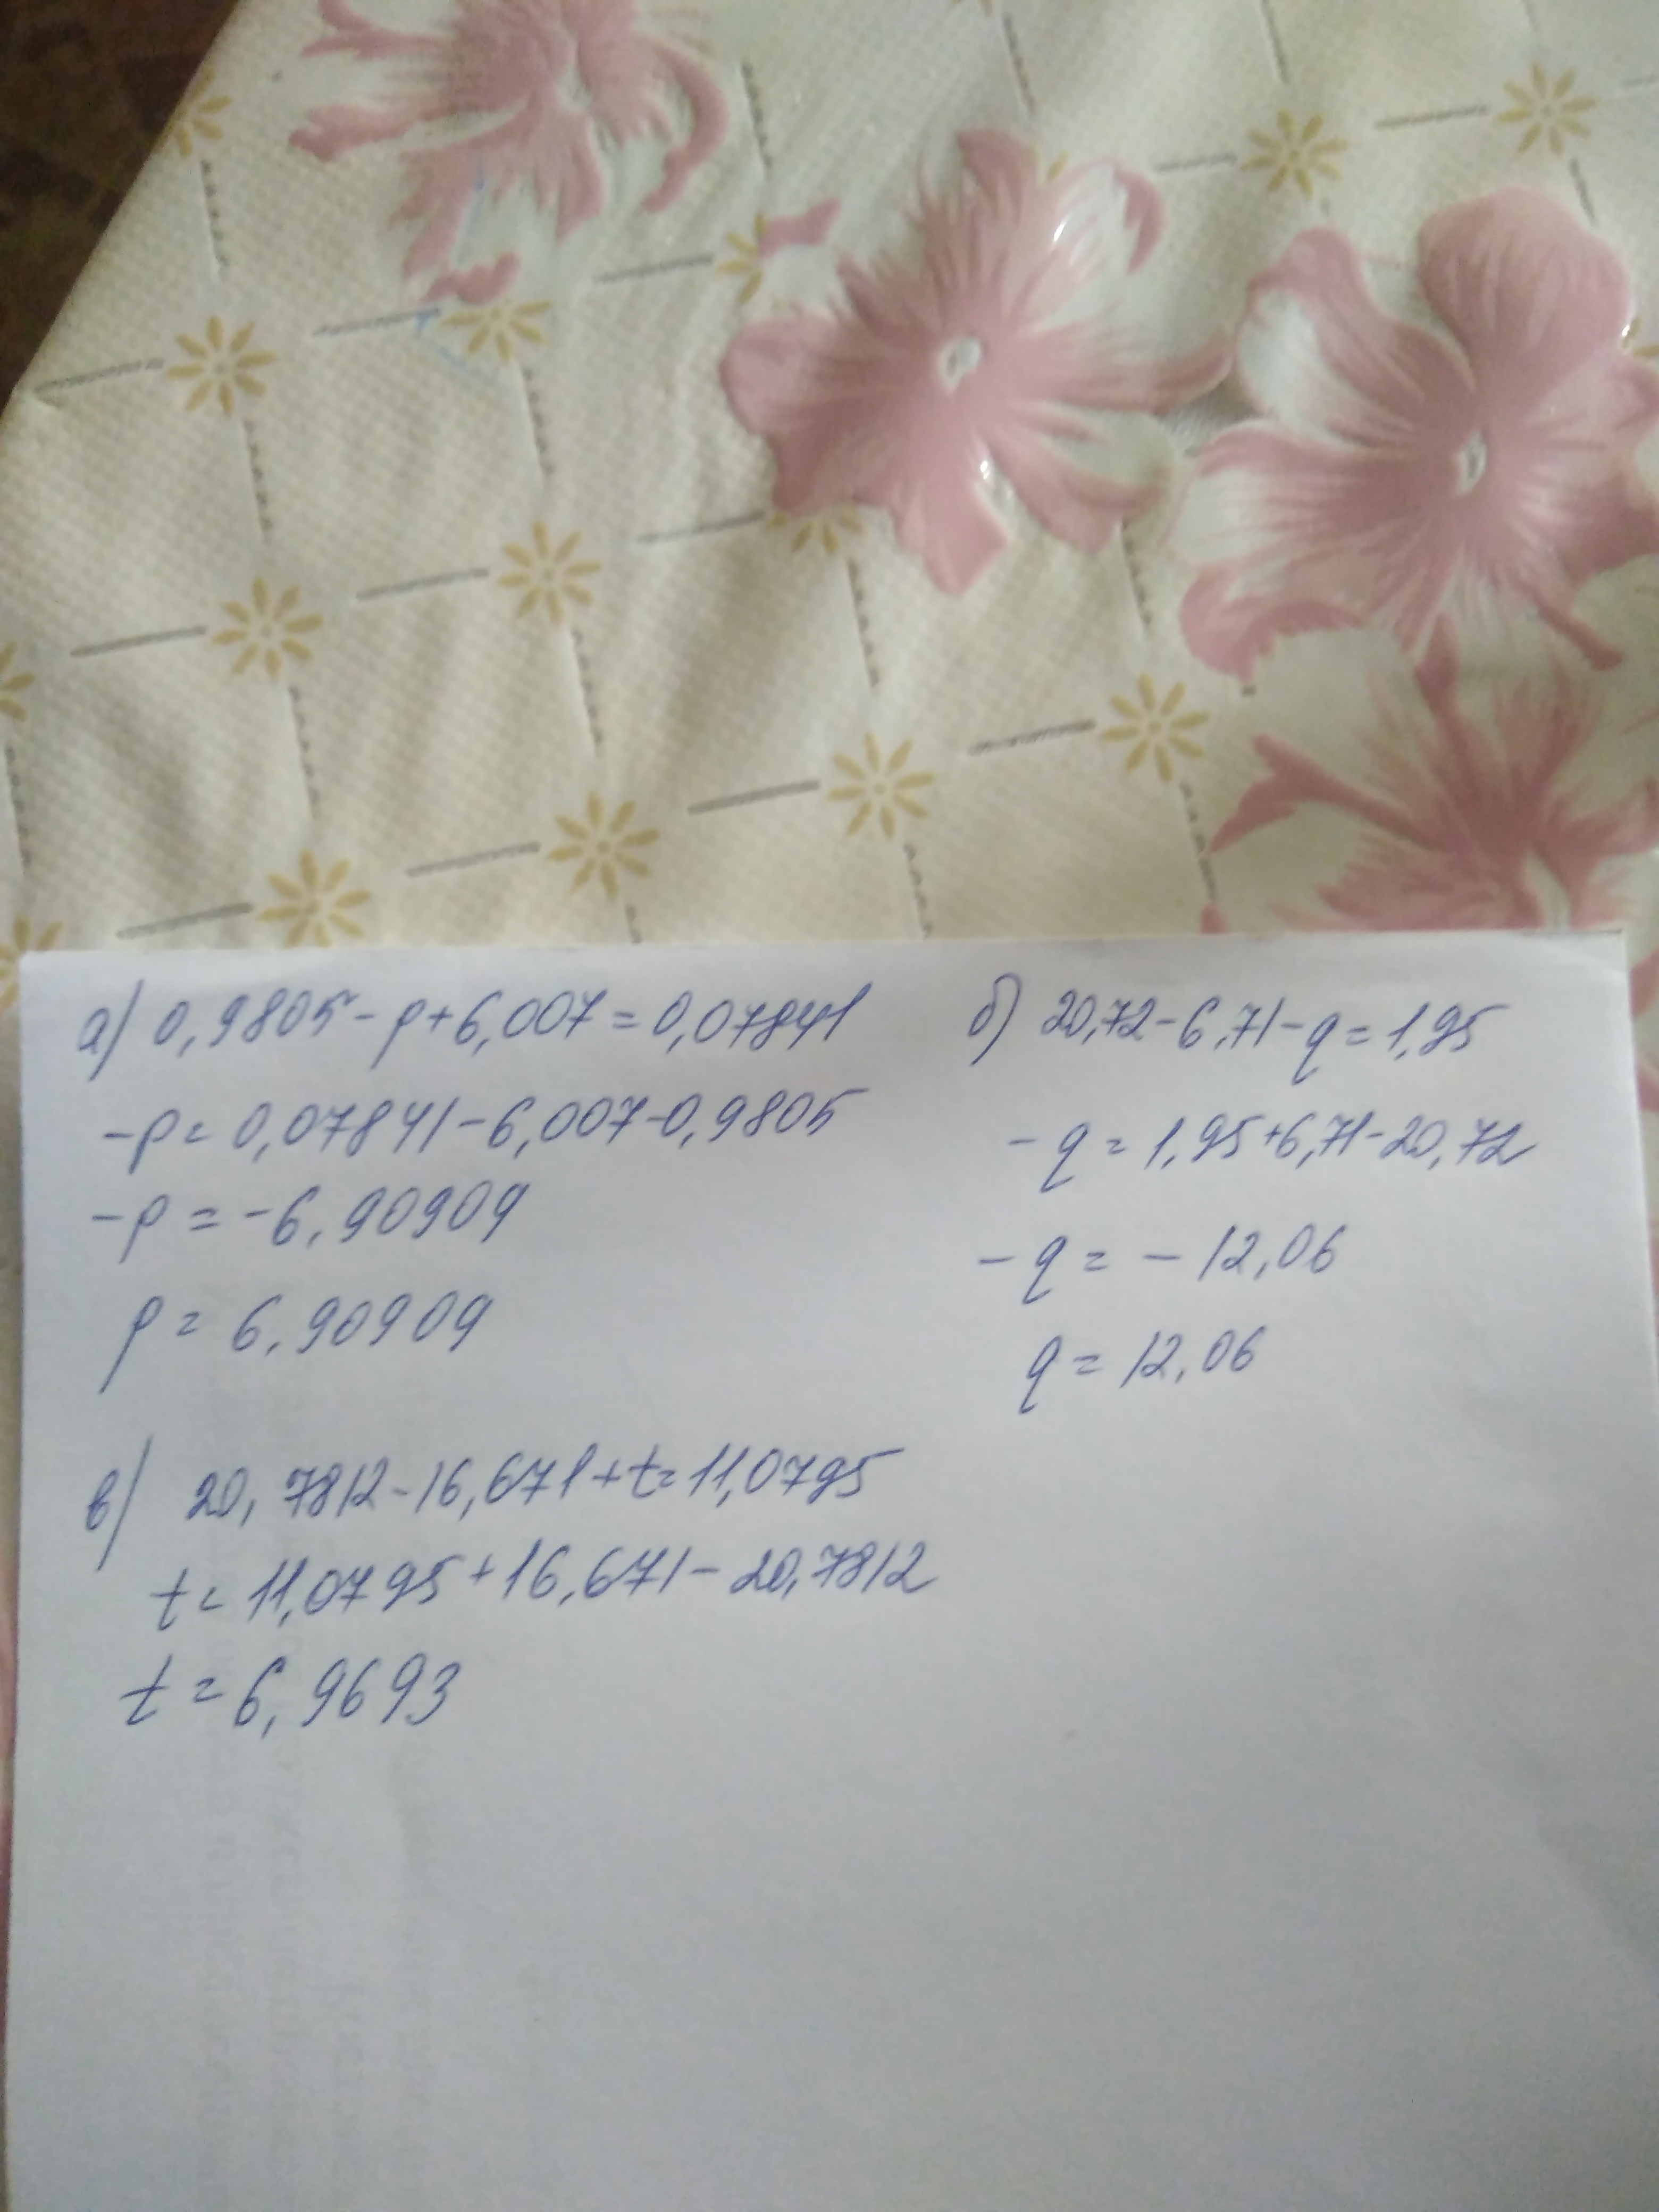 а) 0,9805 - p + 6,007 = 0,07841
-p = 0,07841 - 6,007 - 0,9805
-p = -6,90909
p = 6,90909
б) 20,72 - 6,71 - q = 1,95
-q = 1,95 + 6,71 - 20,72
-q = - 12,06
q = 12,06
в) 20,7812 - 16,671 + t = 11,0795
t = 11,0795 + 16,671 - 20,7812
t = 6,9693